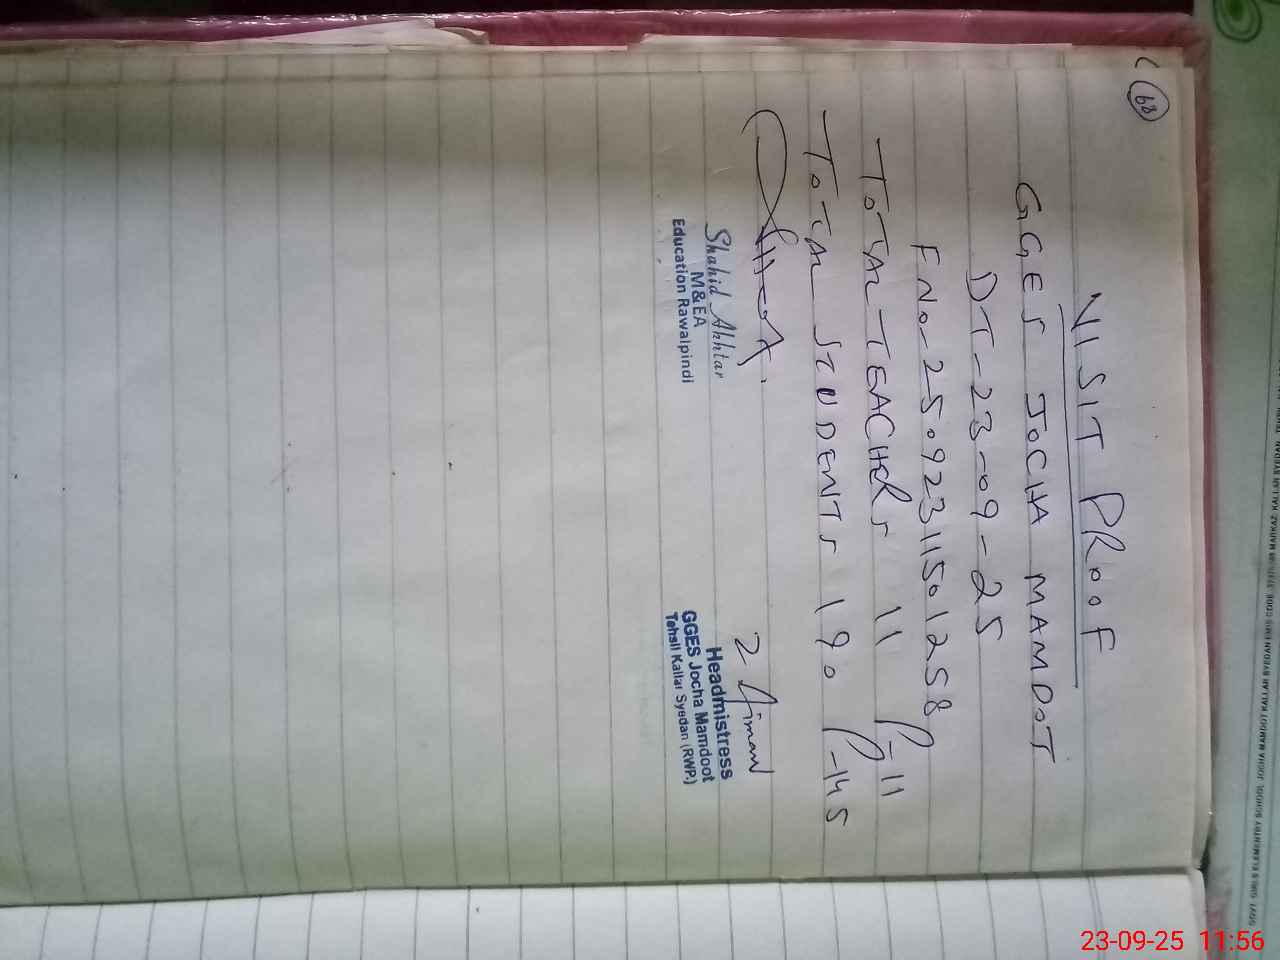 68
VISIT PROOF
GGES JOCHA MAMDOT
DT-23-09-25
FNo-2509231150 1258
TOTAL TEACHERS 11 P-11
TOTAL STUDENTS 190 P-145
Shahid Akhtar
M&EA
Education Rawalpindi
Headmistress
GGES Jocha Mamdoot
Tehsil Kallar Syedan (RWP.)
GOVT GIRLS ELEMENTRY SCHOOL JOCHA MAMDOT KALLAR SYEDAN EMIS CODE
MARKAZ KALLAR SYEDAN
23-09-25 11:56